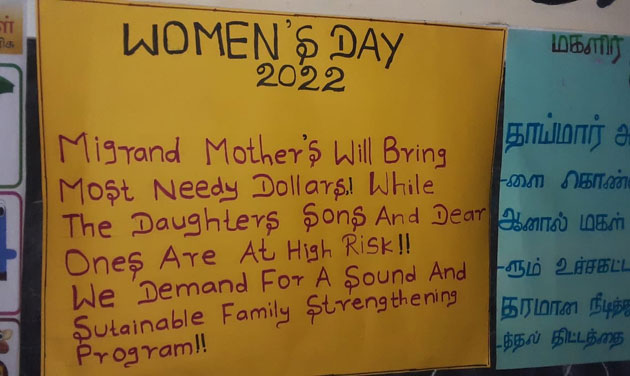 WOMEN'S DAY
2022
Migrand Mother's Will Bring
Most Needy Dollars! While
The Daughters Sons And Dear
Ones Are At High Risk!!
We Demand For A Sound And
Sutainable Family Strengthening
Program!!
மகளிர்
தாய்மார்
-ளை கொண்
ஆனால் மகள்
-ளும் உச்சகட்
தரமான நீடித்
-த்தல் திட்டத்தை